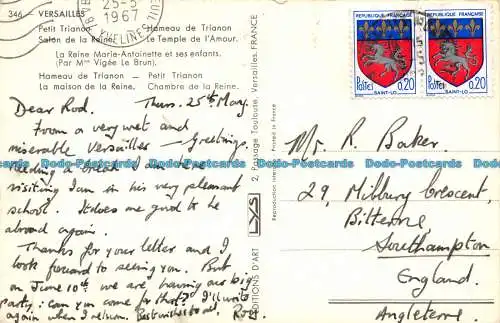 346 - VERSAILLES
Petit Trianon Hameau de Trianon
Salon de la Reine. Le Temple de l'Amour.
La Reine Marie-Antoinette et ses enfants.
(Par Mme Vigée Le Brun).
Hameau de Trianon — Petit Trianon
La maison de la Reine. Chambre de la Reine.
25-5
1967
YVELINES
Dear Rod. Thurs. 25th May.
From a very wet and
miserable Versailles - Greetings.
Needing a break I am here
visiting Ian in his very pleasant
school. It does me good to be
abroad again.
Thanks for your letter and I
look forward to seeing you. But
on June 10th we are having our big
party: can you come for that? I'll write
again when I return. Best wishes to all,
EDITIONS D'ART LYS 2, Passage Toulouse, Versailles. FRANCE
Reproduction Printed in France
REPUBLIQUE FRANÇAISE
Postes 0,20
SAINT-LO
REPUBLIQUE FRANÇAISE
Postes 0,20
SAINT-LO
Mr. R. Baker.
29, Milbury Crescent,
Bitterne
Southampton
England.
Angleterre.
Docb-Postcards Docb-Postcards Docb-Postcards